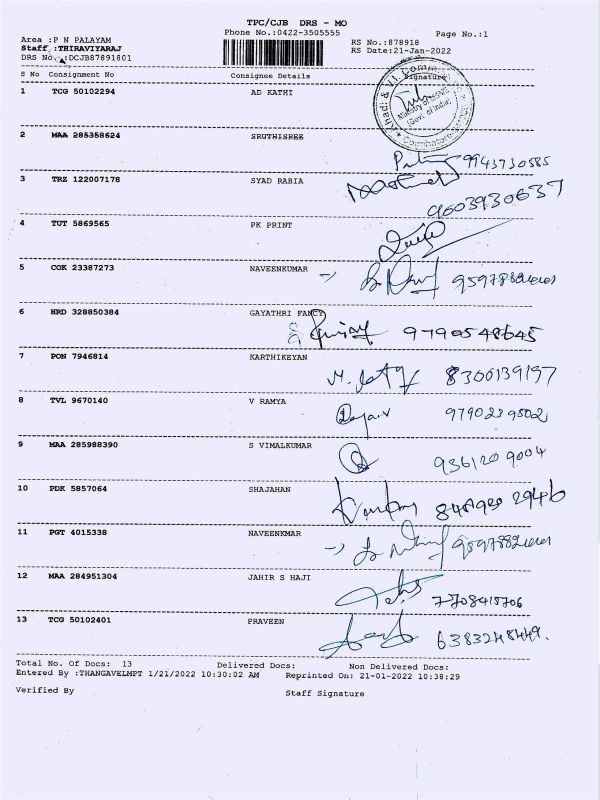 TPC/CJB DRS - MO
Phone No.:0422-3505555 Page No.:1
Area :P N PALAYAM
Staff :THIRAVIYARAJ RS No.:878918
DRS No. :DCJB87891801 RS Date:21-Jan-2022
S No Consignment No Consignee Details Signature
1 TCG 50102294 AD KATHI
Khadi & V.I. Comm
Ministry of MSME
(Govt. of India)
Coimbatore
2 MAA 285358624 SRUTHISREE
9943730585
3 TRZ 122007178 SYAD RABIA
9603930637
4 TUT 5869565 PK PRINT
5 COK 23387273 NAVEENKUMAR
6 HRD 328850384 GAYATHRI FANCY
9790548645
7 PON 7946814 KARTHIKEYAN
8300139197
8 TVL 9670140 V RAMYA
9790239502
9 MAA 285988390 S VIMALKUMAR
9361209004
10 PDK 5857064 SHAJAHAN
11 PGT 4015338 NAVEENKMAR
12 MAA 284951304 JAHIR S HAJI
7708415706
13 TCG 50102401 PRAVEEN
6383248449.
Total No. Of Docs: 13 Delivered Docs: Non Delivered Docs:
Entered By :THANGAVELMPT 1/21/2022 10:30:02 AM Reprinted On: 21-01-2022 10:38:29
Verified By Staff Signature